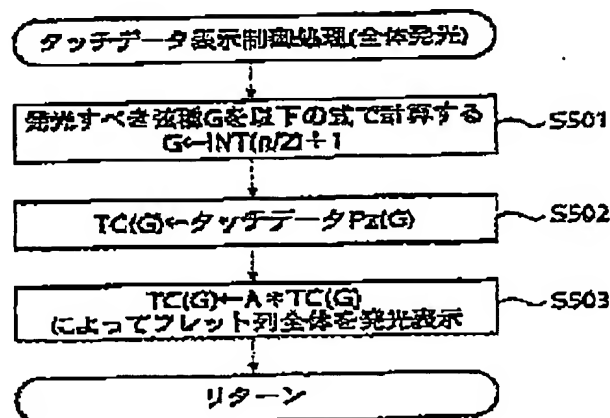 タッチデータ表示制御処理(全体発光)
発光すべき弦種Gを以下の式で計算する
G←INT(n/2)+1
S501
TC(G)←タッチデータPz(G)
S502
TC(G)←A*TC(G)
によってフレット列全体を発光表示
S503
リターン